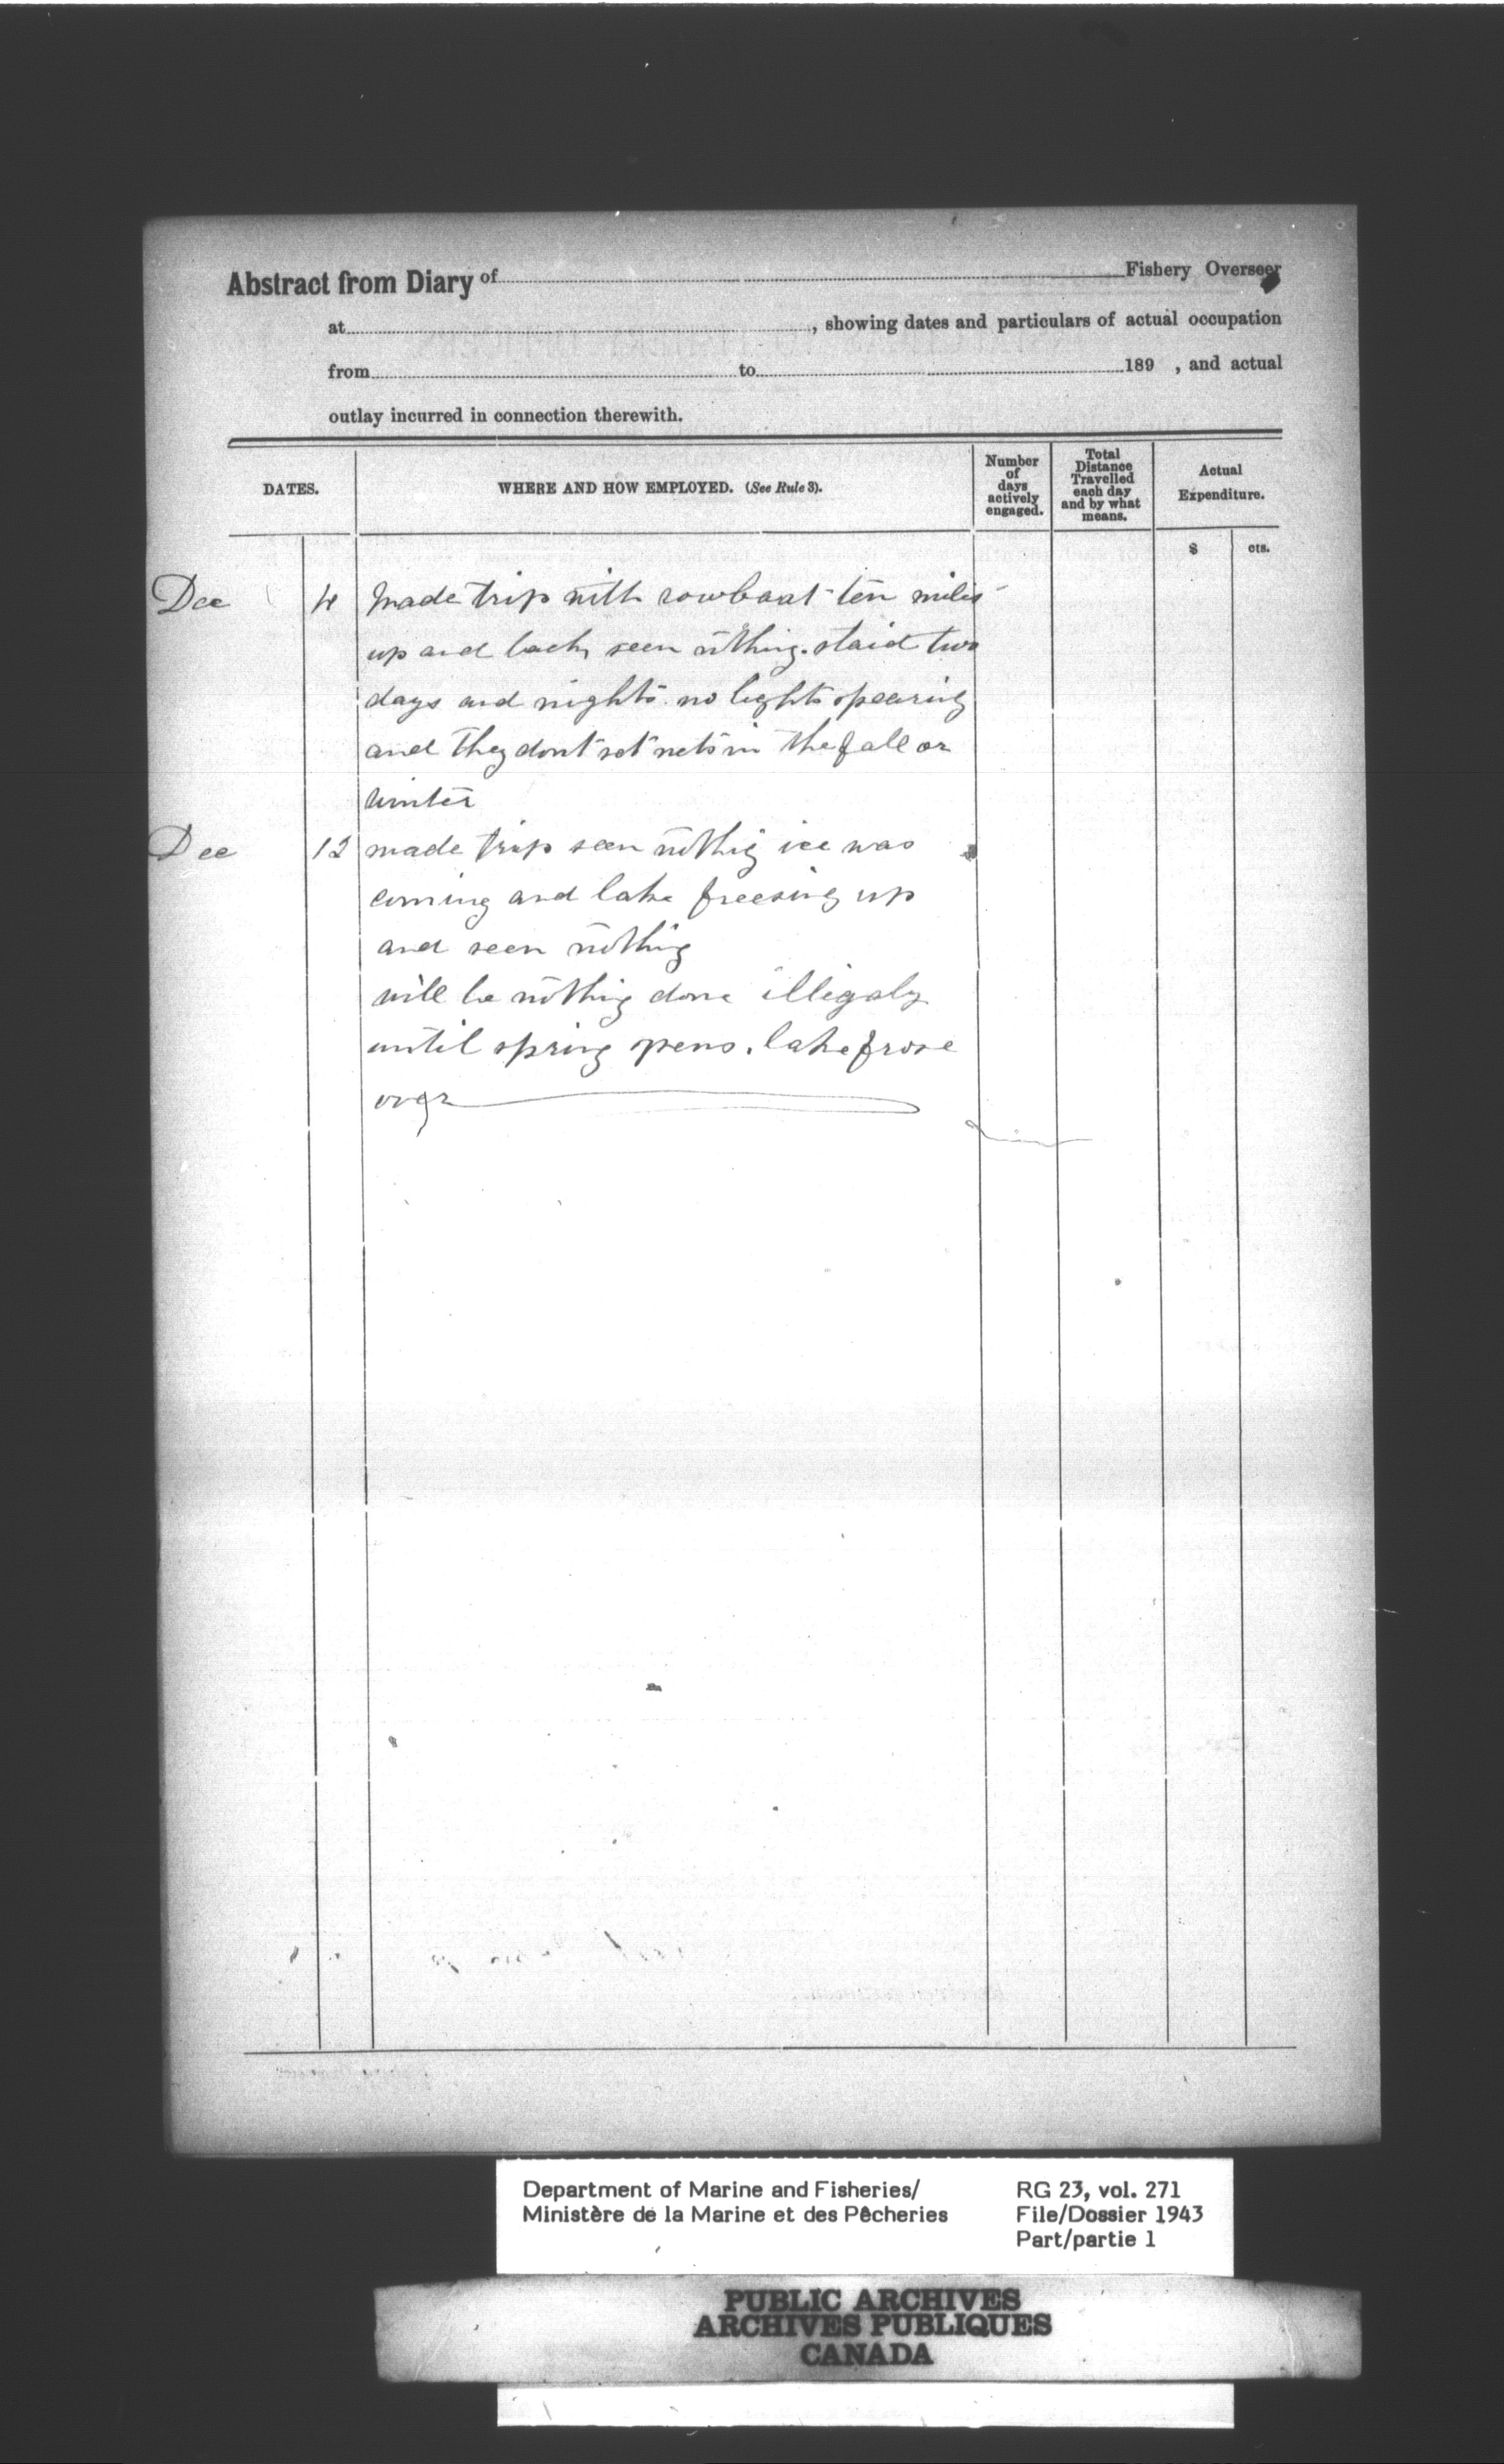 Abstract from Diary of Fishery Overseer
at , showing dates and particulars of actual occupation
from to 189 , and actual
outlay incurred in connection therewith.
DATES.
WHERE AND HOW EMPLOYED. (See Rule 3).
Number of days actively engaged.
Total Distance Travelled each day and by what means.
Actual Expenditure.
$ cts.
Dec 4 Made trip with rowboat ten miles
up and back seen nothing. staid two
days and nights no lights spearing
and they dont set nets in the fall or
winter
Dec 12 made trip seen nothig ice was
coming and lake freesing up
and seen nothing
will be nothig done illigaly
until spring opens. lake frose
over
Department of Marine and Fisheries/
Ministère de la Marine et des Pêcheries
RG 23, vol. 271
File/Dossier 1943
Part/partie 1
PUBLIC ARCHIVES
ARCHIVES PUBLIQUES
CANADA